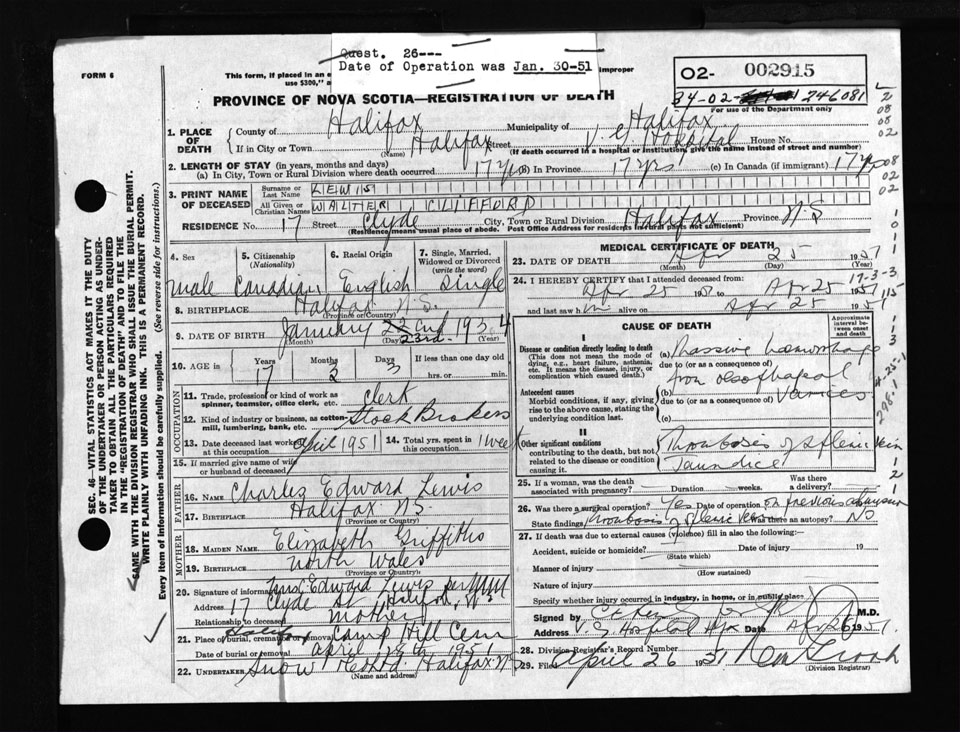 Quest. 26---
Date of Operation was Jan. 30-51
FORM 6
This form, if placed in an e
improper
use $300," a
02- 002915
34-02- 246081
For use of the Department only
PROVINCE OF NOVA SCOTIA—REGISTRATION OF DEATH
1. PLACE OF DEATH
County of Halifax Municipality of Halifax
If in City or Town Halifax Street V. G Hospital House No.
(Name) (If death occurred in a hospital or institution, give the name instead of street and number)
2. LENGTH OF STAY (in years, months and days)
(a) In City, Town or Rural Division where death occurred 17 yrs (b) In Province 17 yrs (c) In Canada (if immigrant) 17 yrs
3. PRINT NAME OF DECEASED
Surname or Last Name LEWIS
All Given or Christian Names WALTER CLIFFORD
RESIDENCE No. 17 Street Clyde City, Town or Rural Division Halifax Province N.S
(Residence means usual place of abode. Post Office Address for residents in rural parts not sufficient)
4. Sex
male
5. Citizenship (Nationality)
Canadian
6. Racial Origin
English
7. Single, Married, Widowed or Divorced (write the word)
Single
8. BIRTHPLACE Halifax N.S.
(Province or Country)
9. DATE OF BIRTH January 23rd 1934
(Month) (Day) (Year)
10. AGE in
Years Months Days If less than one day old
17 3 hrs. or min.
OCCUPATION
11. Trade, profession or kind of work as spinner, teamster, office clerk, etc. clerk
12. Kind of industry or business, as cotton-mill, lumbering, bank, etc. Stock Brokers
13. Date deceased last worked at this occupation April 1951
14. Total yrs. spent in this occupation 1 week
15. If married give name of wife or husband of deceased
FATHER
16. Name Charles Edward Lewis
17. Birthplace Halifax N.S.
(Province or Country)
MOTHER
18. MAIDEN NAME Elizabeth Griffiths
19. BIRTHPLACE North Wales
(Province or Country)
20. Signature of informant Mrs. Edward Lewis per
Address 17 Clyde St Halifax, N.S.
Relationship to deceased mother
21. Place of burial, cremation or removal Halifax Camp Hill Cem
Date of burial or removal April 1951
22. UNDERTAKER Snow Halifax N.S
(Name and address)
MEDICAL CERTIFICATE OF DEATH
23. DATE OF DEATH Apr 25 1951
(Month) (Day) (Year)
24. I HEREBY CERTIFY that I attended deceased from:
Apr 25 1951 to Apr 25 1951
and last saw him alive on Apr 25 1951
17-3-3
CAUSE OF DEATH
Approximate interval between onset and death
I
Disease or condition directly leading to death
(This does not mean the mode of dying, e.g., heart failure, asthenia, etc. It means the disease, injury, or complication which caused death.)
(a) Massive haemorrhage
due to (or as a consequence of)
from oesophageal
Antecedent causes
Morbid conditions, if any, giving rise to the above cause, stating the underlying condition last.
(b) Varices
due to (or as a consequence of)
(c)
II
Other significant conditions contributing to the death, but not related to the disease or condition causing it.
Thrombosis of splenic vein
Jaundice
25. If a woman, was the death associated with pregnancy? Duration weeks. Was there a delivery?
26. Was there a surgical operation? Yes Date of operation on previous admission
State findings thrombosis of splenic vein Was there an autopsy? No
27. If death was due to external causes (violence) fill in also the following:—
Accident, suicide or homicide? Date of injury 19
(State which)
Manner of injury
(How sustained)
Nature of injury
Specify whether injury occurred in industry, in home, or in public place
Signed by M.D.
Address V. G Hospital Hfx Date Apr 26 1951
28. Division Registrar's Record Number
29. Filed April 26 1951
(Division Registrar)
SEC. 46—VITAL STATISTICS ACT MAKES IT THE DUTY OF THE UNDERTAKER OR PERSON ACTING AS UNDERTAKER TO OBTAIN ALL THE PARTICULARS REQUIRED IN THE "REGISTRATION OF DEATH" AND TO FILE THE SAME WITH THE DIVISION REGISTRAR WHO SHALL ISSUE THE BURIAL PERMIT.
WRITE PLAINLY WITH UNFADING INK. THIS IS A PERMANENT RECORD.
Every item of information should be carefully supplied. (See reverse side for instructions.)